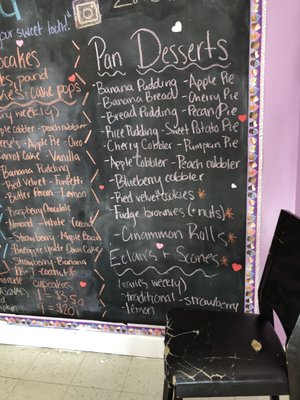 your sweet tooth!"
Pan Desserts
-Banana Pudding -Apple Pie
-Banana Bread -Cherry Pie
-Bread Pudding -Pecan Pie
-Rice Pudding -Sweet Potato Pie
-Cherry Cobbler -Pumpkin Pie
-Apple Cobbler -Peach cobbler
-Blueberry cobbler
-Red velvet cookies *
-Fudge brownies (+nuts) *
-Cinammon Rolls *
Eclairs + Scones *
(varies weekly)
-traditional -strawberry
-lemon
cakes
pound
cake pops
weekly)
cobbler -peach cobbler
-Apple Pie -Oreo
Carrot Cake -Vanilla
Banana Pudding
-Red Velvet -Funfetti
-Butter Pecan -Lemon
-Raspberry Chocolate
-Almond -White
-Strawberry -Maple
-Pineapple Upside Down Cake
-Strawberry -Banana
coconut *
cupcakes
1 = $3.50
4 = $20